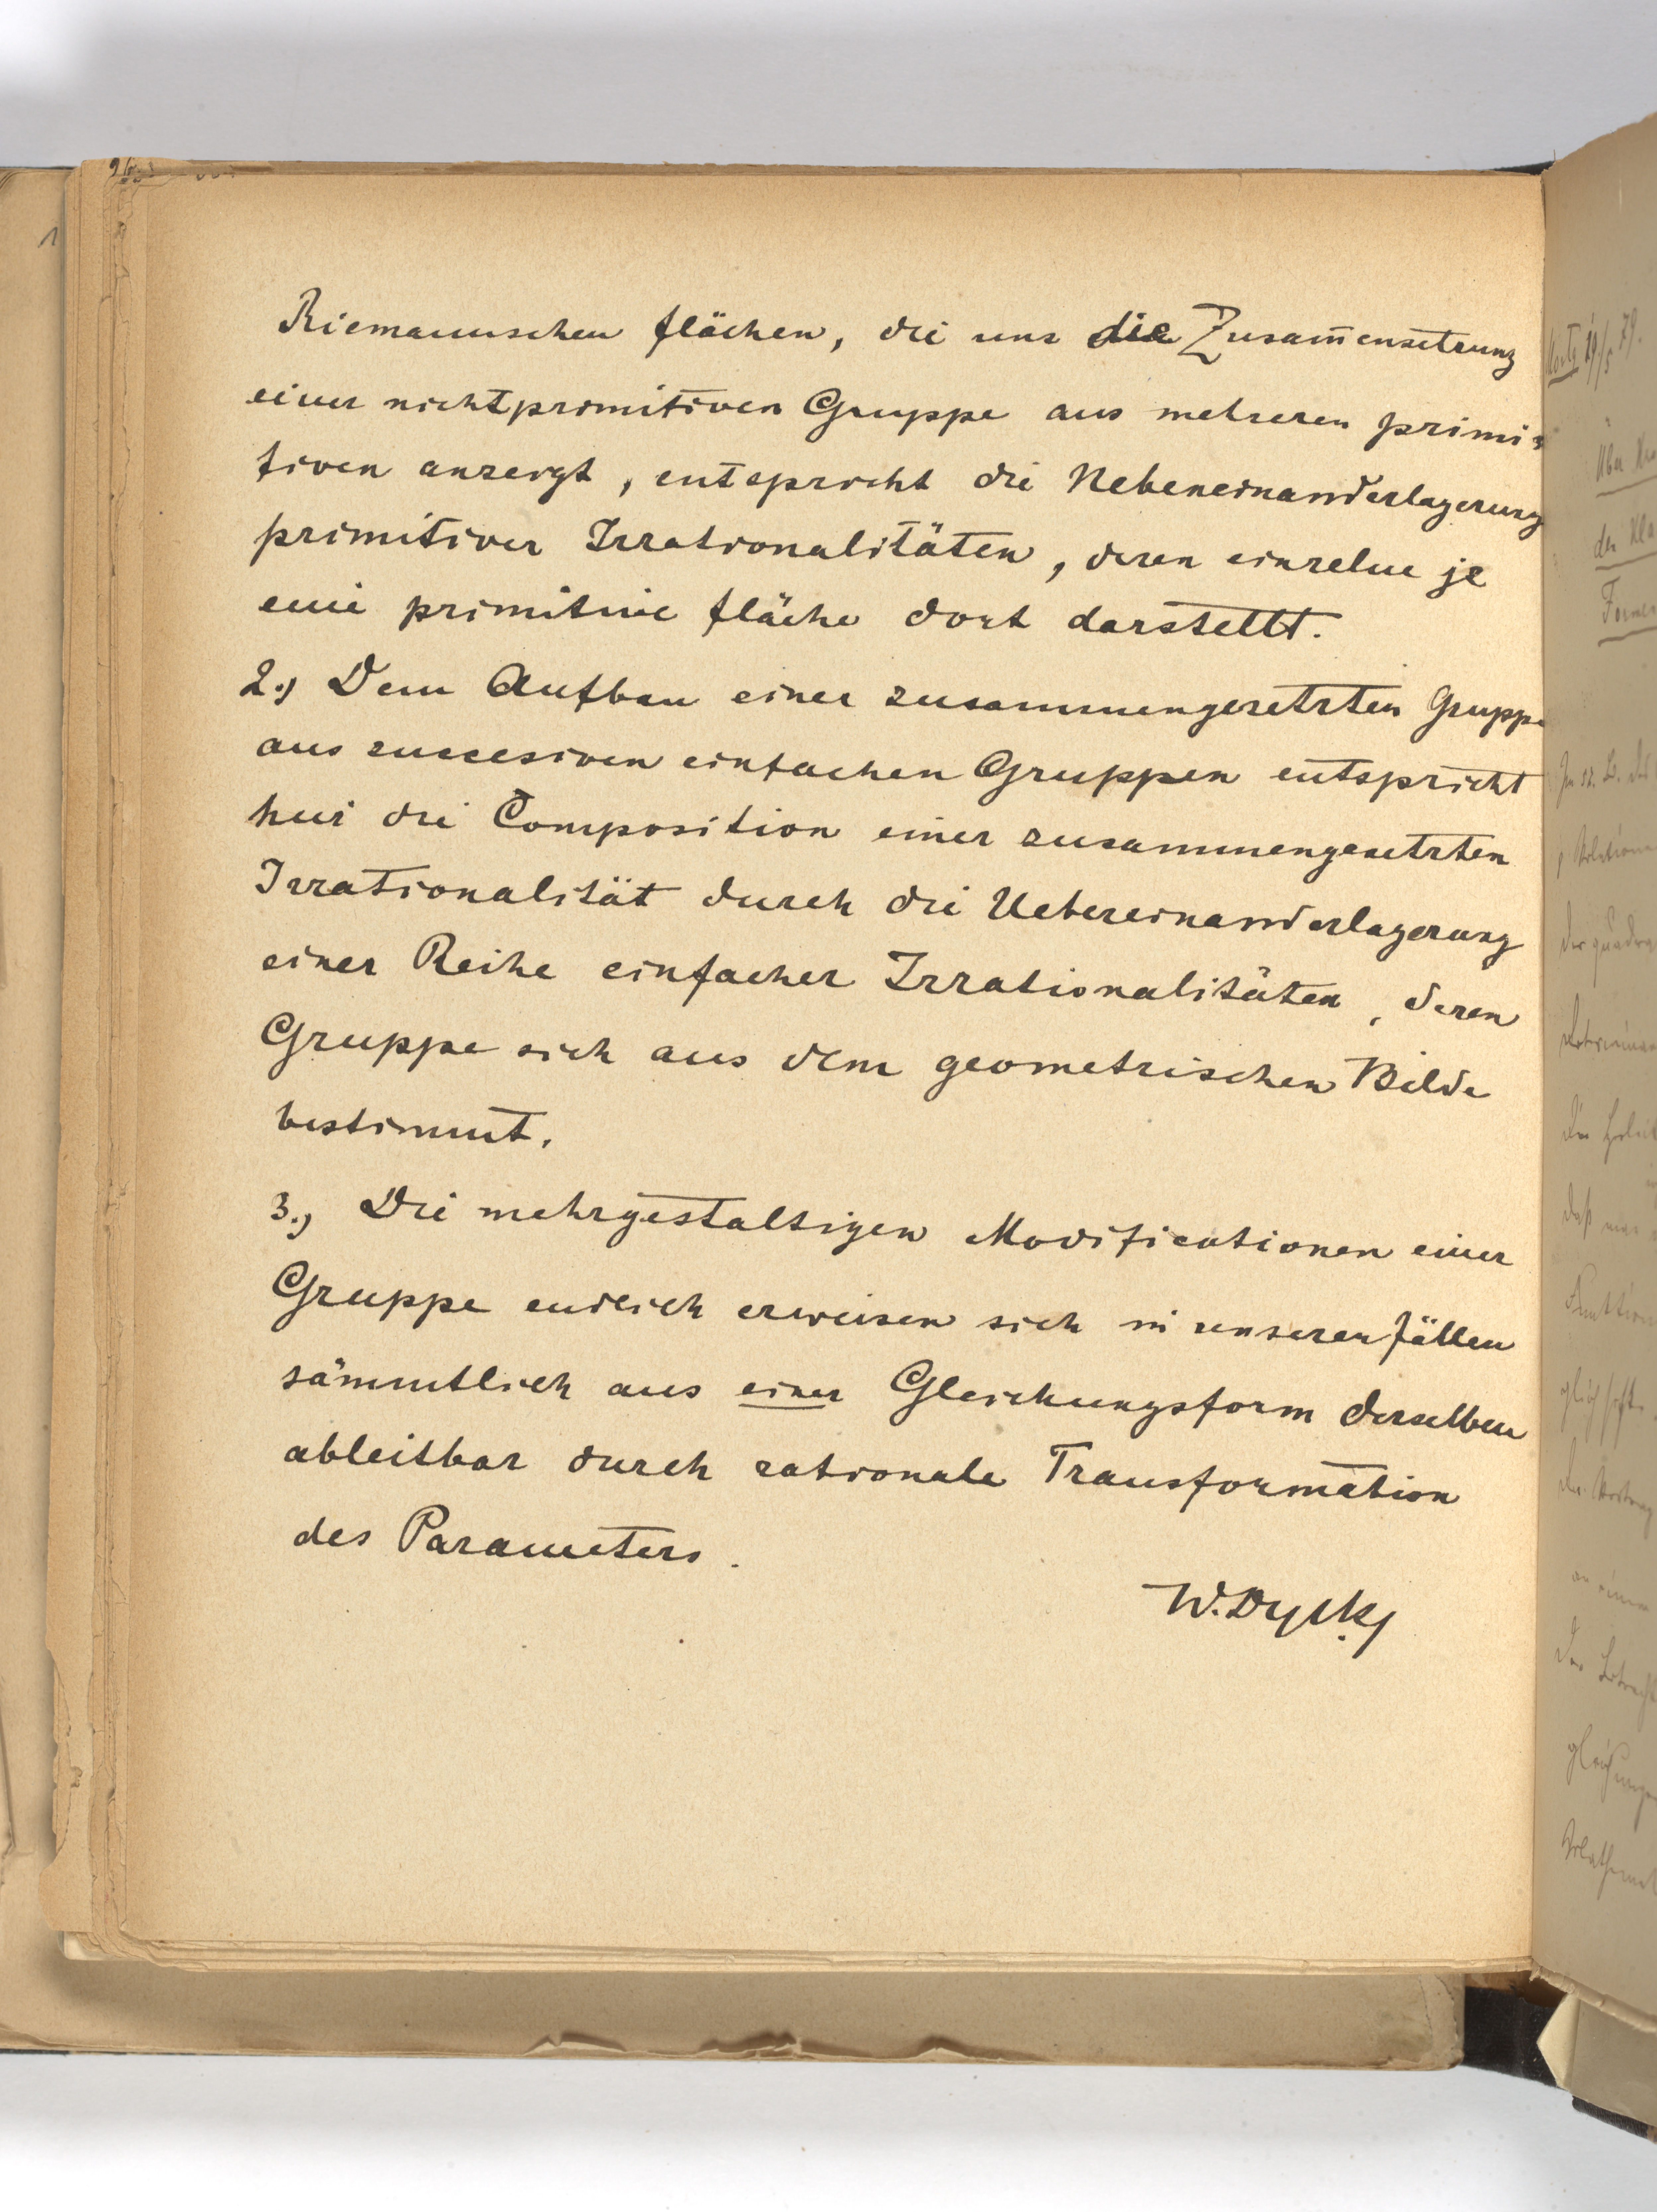 Riemannschen Flächen, die uns die Zusam̅ensetzung
einer nichtprimitiven Gruppe aus mehreren primi-
tiven anzeigt, entspricht die Nebeneinanderlagerung
primitiver Irrationalitäten, deren einzelne je
eine primitive Fläche dort darstellt.
2.) Dem Aufbau einer zusammengesetzten Gruppe
aus succesiven einfachen Gruppen entspricht
hier die Composition einer zusammengesetzten
Irrationalität durch die Uebereinanderlagerung
einer Reihe einfacher Irrationalitäten, deren
Gruppe sich aus dem geometrischen Bilde
bestimmt.
3.) Die mehrgestaltigen Modificationen einer
Gruppe endlich erweisen sich in unseren Fällen
sämmtlich aus einer Gleichungsform derselben
ableitbar durch rationale Transformation
des Parameters.
W. Dyck